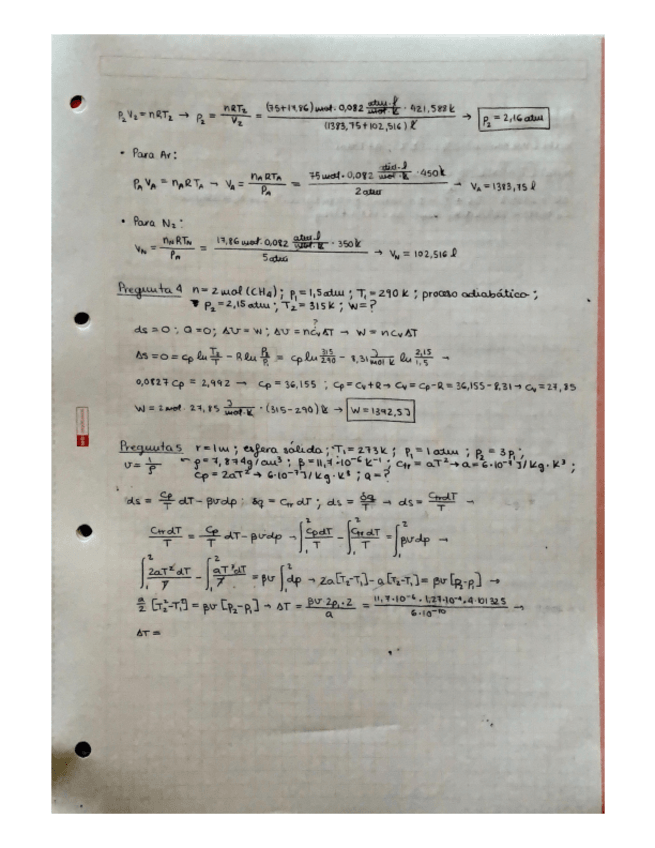 P₂V₂ = nRT₂ → P₂ = nRT₂/V₂ = (75+17,86) mol · 0,082 atm·l/mol·K · 421,588 K / (1383,75+102,516) l → P₂ = 2,16 atm
• Para Ar:
P_A V_A = n_A RT_A → V_A = n_A RT_A/P_A = 75 mol · 0,082 atm·l/mol·K · 450 K / 2 atm → V_A = 1383,75 l
• Para N₂:
V_N = n_N RT_N/P_N = 17,86 mol · 0,082 atm·l/mol·K · 350 K / 5 atm → V_N = 102,516 l
Pregunta 4 n = 2 mol (CH₄); P₁ = 1,5 atm; T₁ = 290 K; proceso adiabático;
P₂ = 2,15 atm; T₂ = 315 K; W = ?
ds = 0; Q = 0; ΔU = W; ΔU = nc_vΔT → W = nc_vΔT
?
Δs = 0 = cp ln T₂/T₁ − R ln P₂/P₁ = cp ln 315/290 − 8,31 J/mol K ln 2,15/1,5 →
0,0827 cp = 2,992 → cp = 36,155; cp = cv + R → cv = cp − R = 36,155 − 8,31 → cv = 27,85
W = 2 mol · 27,85 J/mol·K · (315−290) K → W = 1392,5 J
Pregunta 5 r = 1m; esfera sólida; T₁ = 273 K; P₁ = 1 atm; P₂ = 3P₁;
v = 1/ρ → ρ = 7,874 g/cm³; β = 11,7·10⁻⁶ K⁻¹; C_π = aT² → a = 6·10⁻⁷ J/kg·K³;
cp = 2aT² → 6·10⁻⁷ J/kg·K³; Q = ?
ds = cp/T dT − βvdp; δq = C_π dT; ds = δq/T → ds = C_π dT/T →
C_π dT/T = cp/T dT − βvdp → ∫₁² cp dT/T − ∫₁² C_π dT/T = ∫₁² βvdp →
∫₁² 2aT² dT/T − ∫₁² aT² dT/T = βv ∫₁² dp → 2a[T₂−T₁] − a[T₂−T₁] = βv[P₂−P₁] →
a/2 [T₂²−T₁²] = βv[P₂−P₁] → ΔT = βv 2P₁·2/a = 11,7·10⁻⁶ · 1,27·10⁻⁴ · 4·101325 / 6·10⁻¹⁰ →
ΔT =